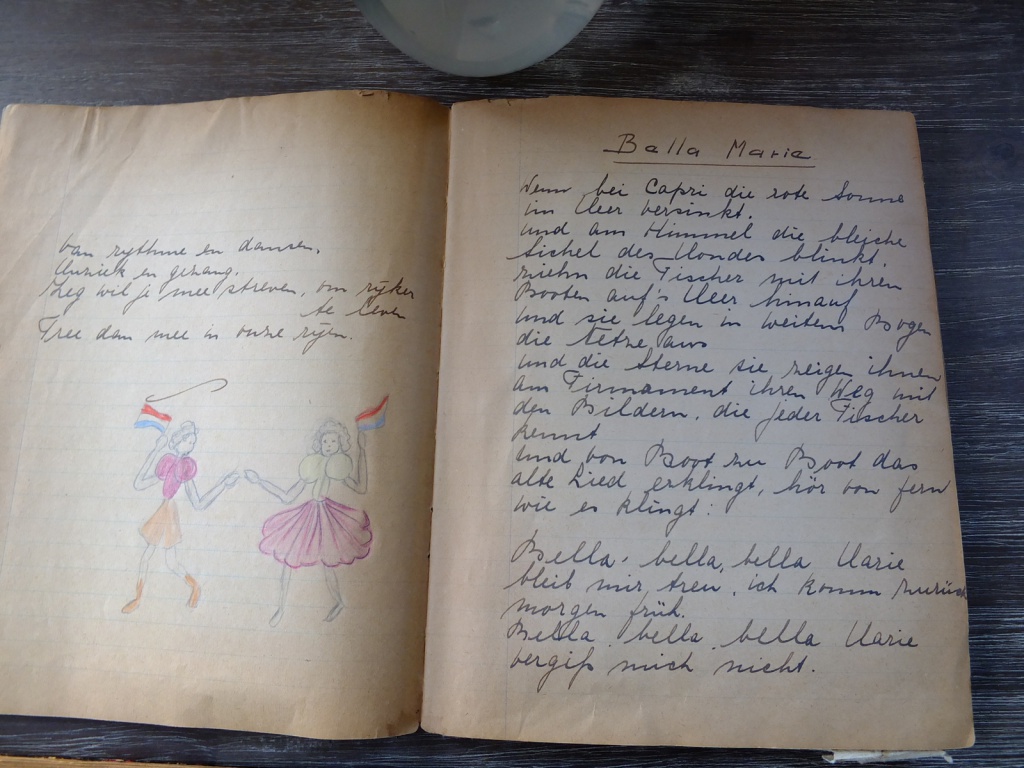 van rythme en dansen,
Muziek en gezang.
Zeg wil je mee streven, om ryker
te leven
Tree dan mee in onze ryen.
Bella Marie
Wenn bei Capri die rote Sonne
im Meer versinkt.
und am Himmel die bleiche
Sichel des Mondes blinkt,
ziehn die Fischer mit ihren
Booten auf's Meer hinauf
und sie legen in weitem Bogen
die Netze aus
und die Sterne sie zeigen ihnen
am Firmament ihren Weg mit
den Bildern, die jeder Fischer
kennt
und von Boot zu Boot das
alte Lied erklingt, hör von fern
wie es klingt:
Bella, bella, bella Marie
bleib mir treu, ich komm zurück
morgen früh.
Bella, bella, bella Marie
vergiß mich nicht.